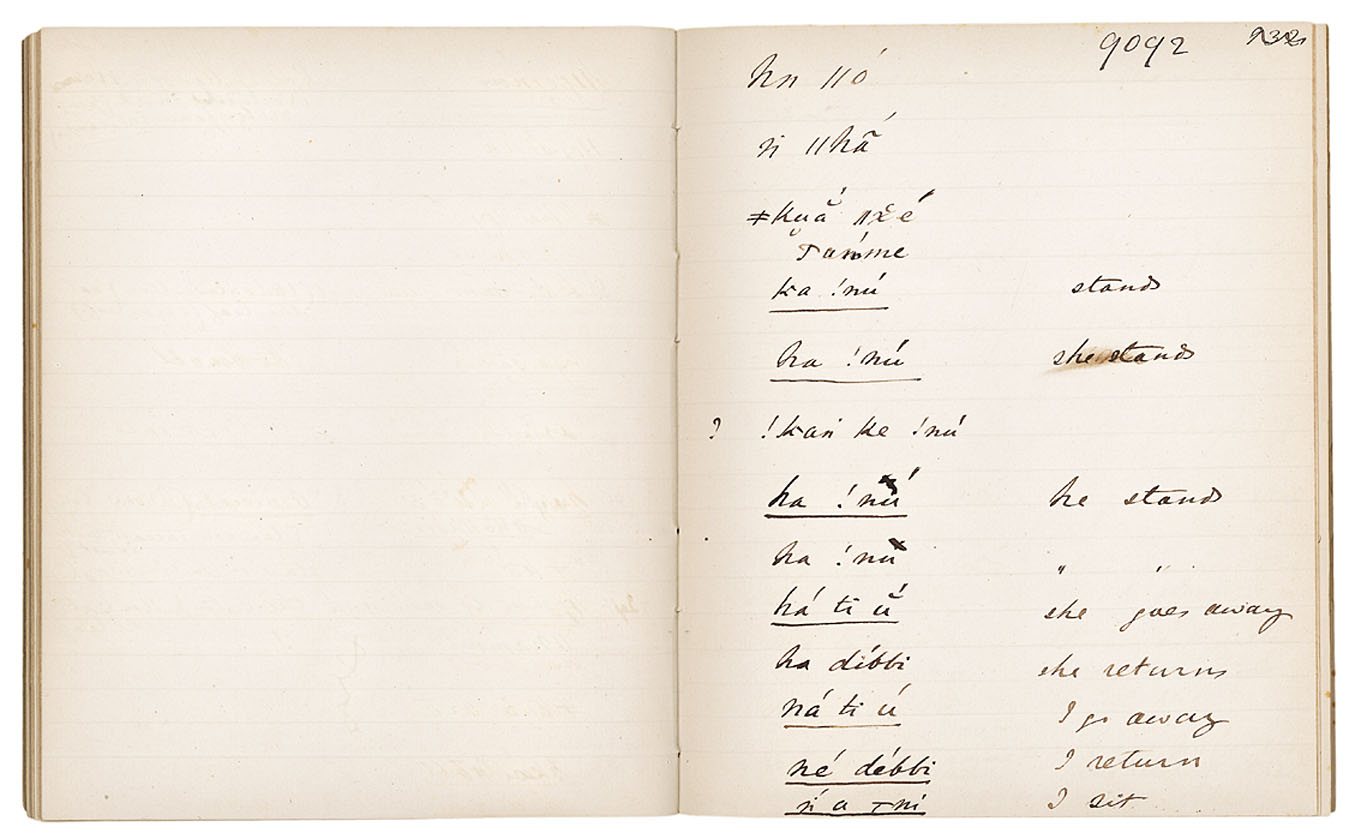 9092
ǁó
ǁhã́
ǂkuắ
Tǎḿme
ka !nú stands
ha !nú she stands
? !kań ke !nú
ha !nú he stands
ha !nu " "
há ti ǔ́ she goes away
ha díbbi she returns
ná ti ú I go away
né débbi I return
ń a tni I sit